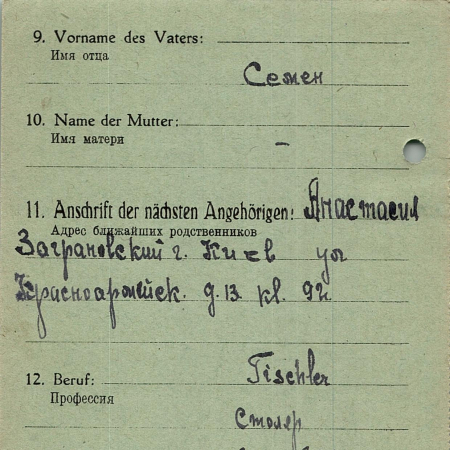 9. Vorname des Vaters:
Имя отца
Семен
10. Name der Mutter:
Имя матери
-
11. Anschrift der nächsten Angehörigen: Анастасия
Адрес ближайших родственников
Заграновский г. Киев ул
Красноармейск. д. 13. кл. 92
12. Beruf:
Tischler
Профессия
Столяр